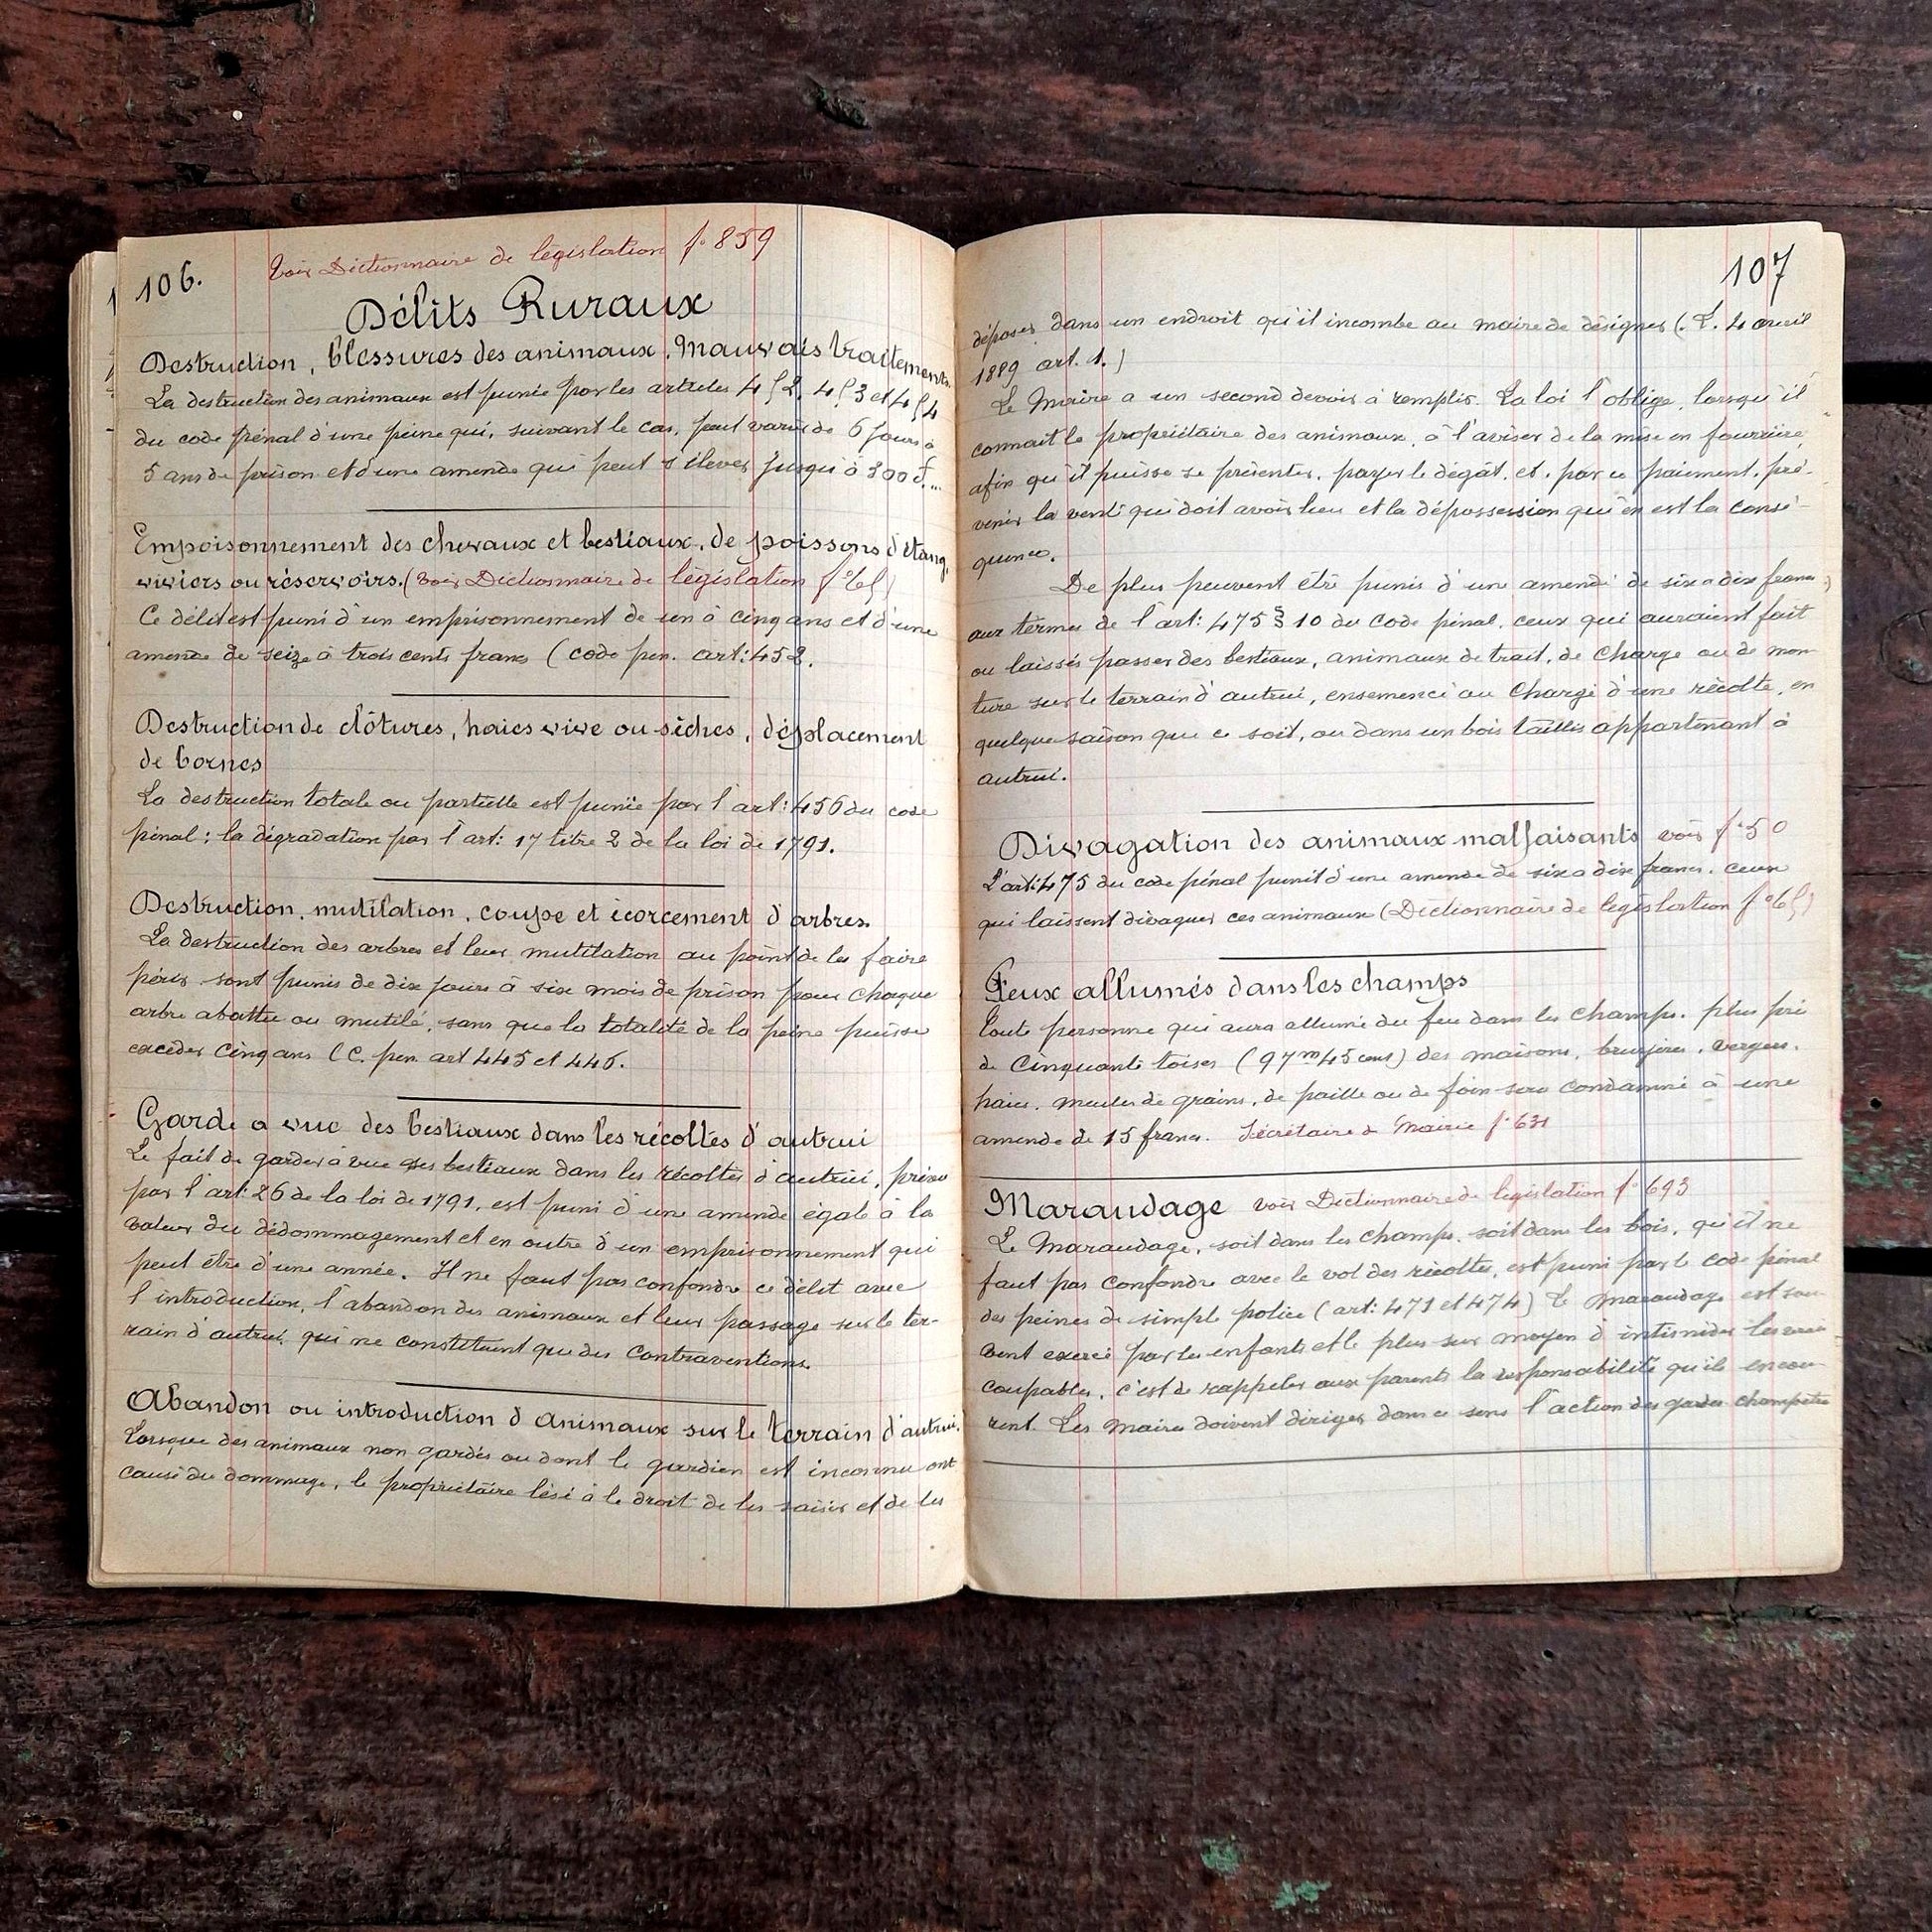 106.
Voir Dictionnaire de législation f° 859
Délits Ruraux
Destruction, blessures des animaux. Mauvais traitements.
La destruction des animaux est punie par les articles 4§2, 4§3 et 4§4
du code pénal d'une peine qui, suivant le cas, peut varier de 6 jours à
5 ans de prison et d'une amende qui peut s'élever jusqu'à 300 f...
Empoisonnement des chevaux et bestiaux, de poissons d'étang,
viviers ou réservoirs. (voir Dictionnaire de législation
Ce délit est puni d'un emprisonnement de un à cinq ans et d'une
amende de seize à trois cents francs (code pen. art: 452.
Destruction de clôtures, haies vive ou sèches, déplacement
de bornes
La destruction totale ou partielle est punie par l'art: 456 du code
pénal; la dégradation par l'art: 17 titre 2 de la loi de 1791.
Destruction, mutilation, coupe et écorcement d'arbres.
La destruction des arbres et leur mutilation au point de les faire
périr sont punis de dix jours à six mois de prison pour chaque
arbre abattu ou mutilé, sans que la totalité de la peine puisse
excéder cinq ans (C. pen. art 445 et 446.
Garde a vue des bestiaux dans les récoltes d'autrui
Le fait de garder à vue des bestiaux dans les récoltes d'autrui, prévu
par l'art: 26 de la loi de 1791, est puni d'une amende égale à la
valeur du dédommagement et en outre d'un emprisonnement qui
peut être d'une année. Il ne faut pas confondre ce délit avec
l'introduction, l'abandon des animaux et leur passage sur le ter-
rain d'autrui, qui ne constituent que des contraventions.
Abandon ou introduction d'animaux sur le terrain d'autrui.
Lorsque des animaux non gardés ou dont le gardien est inconnu ont
causé du dommage, le propriétaire lésé à le droit de les saisir et de les
107
déposer dans un endroit qu'il incombe au maire de désigner (. L. 4 avril
1889 art. 1.)
Le Maire a un second devoir à remplir. La loi l'oblige, lorsqu'il
connaît le propriétaire des animaux, à l'aviser de la mise en fourrière
afin qu'il puisse se présenter, payer le dégât, et, par ce paiement, pré-
venir la vente qui doit avoir lieu et la dépossession qui en est la consé-
quence.
De plus peuvent être punis d'un amende de six a dix francs,
aux termes de l'art: 475 § 10 du code pénal, ceux qui auraient fait
ou laissés passer des bestiaux, animaux de trait, de charge ou de mon
ture sur le terrain d'autrui, ensemencé ou chargé d'une récolte, en
quelque saison que ce soit, ou dans un bois taillis appartenant à
autrui.
Divagation des animaux malfaisants voir f° 50
L'art: 475 du code pénal punit d'une amende de six a dix francs, ceux
qui laissent divaguer ces animaux (Dictionnaire de législation
Feux allumés dans les champs
Toute personne qui aura allumé du feu dans les champs, plus près
de cinquante toises (97m45 cent) des maisons, bruyères, vergers,
haies, meules de grains, de paille ou de foin sera condamné à une
amende de 15 francs. Secrétaire de Mairie f° 631
Maraudage voir Dictionnaire de législation f° 693
Le Maraudage, soit dans les champs, soit dans les bois, qu'il ne
faut pas confondre avec le vol des récoltes, est puni par le code pénal
des peines de simple police (art: 471 et 474) Le maraudage est sou-
vent exercé par les enfants et le plus sur moyen d'intimider les vrais
coupables, c'est de rappeler aux parents la responsabilité qu'ils encou-
rent. Les Maires doivent diriger dans ce sens l'action des gardes champêtres